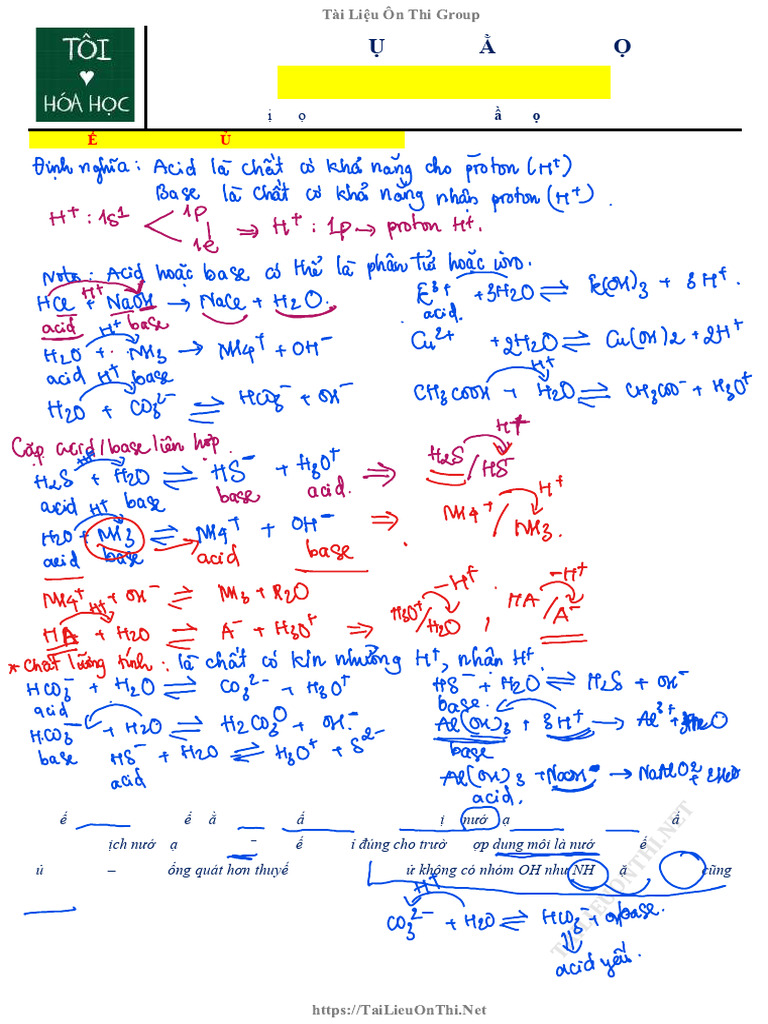 Tài Liệu Ôn Thi Group
TÔI
♥
HÓA HỌC
Ụ Ằ Ọ
ị ọ ầ ọ
Ế Ủ
Định nghĩa: Acid là chất có khả năng cho proton (H⁺)
Base là chất có khả năng nhận proton (H⁺).
H⁺: 1s¹ 1p 1e ⇒ H⁺: 1p → proton H⁺.
Note: Acid hoặc base có thể là phân tử hoặc ion.
HCl + NaOH → NaCl + H2O.
H⁺
acid base
H2O + NH3 → NH4⁺ + OH⁻
H⁺
acid base
H2O + CO3²⁻ ⇌ HCO3⁻ + OH⁻
H⁺
Fe³⁺ + 3H2O ⇌ Fe(OH)3 + 3H⁺.
acid.
Cu²⁺ + 2H2O ⇌ Cu(OH)2 + 2H⁺
H⁺
CH3COOH + H2O ⇌ CH3COO⁻ + H3O⁺
Cặp acid/base liên hợp.
H⁺
H2S + H2O ⇌ HS⁻ + H3O⁺ ⇒ H2S/HS⁻
H⁺
acid base base acid.
H⁺
H2O + NH3 ⇌ NH4⁺ + OH⁻ ⇒ NH4⁺/NH3.
H⁺
acid base acid base
NH4⁺ + OH⁻ ⇌ NH3 + H2O
H⁺
HA + H2O ⇌ A⁻ + H3O⁺ ⇒ H3O⁺/H2O, HA/A⁻
-H⁺ -H⁺
* Chất lưỡng tính: là chất có k/n nhường H⁺, nhận H⁺.
HCO3⁻ + H2O ⇌ CO3²⁻ + H3O⁺
acid
HCO3⁻ + H2O ⇌ H2CO3 + OH⁻
base
HS⁻ + H2O ⇌ H3O⁺ + S²⁻
acid
HS⁻ + H2O ⇌ H2S + OH⁻
base.
Al(OH)3 + 3H⁺ → Al³⁺ + 3H2O
base
Al(OH)3 + NaOH → NaAlO2 + 2H2O
acid.
ế ế ằ ấ ị nướ ạ ấ
ịch nướ ạ – ế i đúng cho trườ ợp dung môi là nướ ế
ủ – ổng quát hơn thuyế ử không có nhóm OH như NH ặ cũng
H⁺
CO3²⁻ + H2O ⇌ HCO3⁻ + base.
acid yếu.
TAILIEUONTHI.NET
https://TaiLieuOnThi.Net